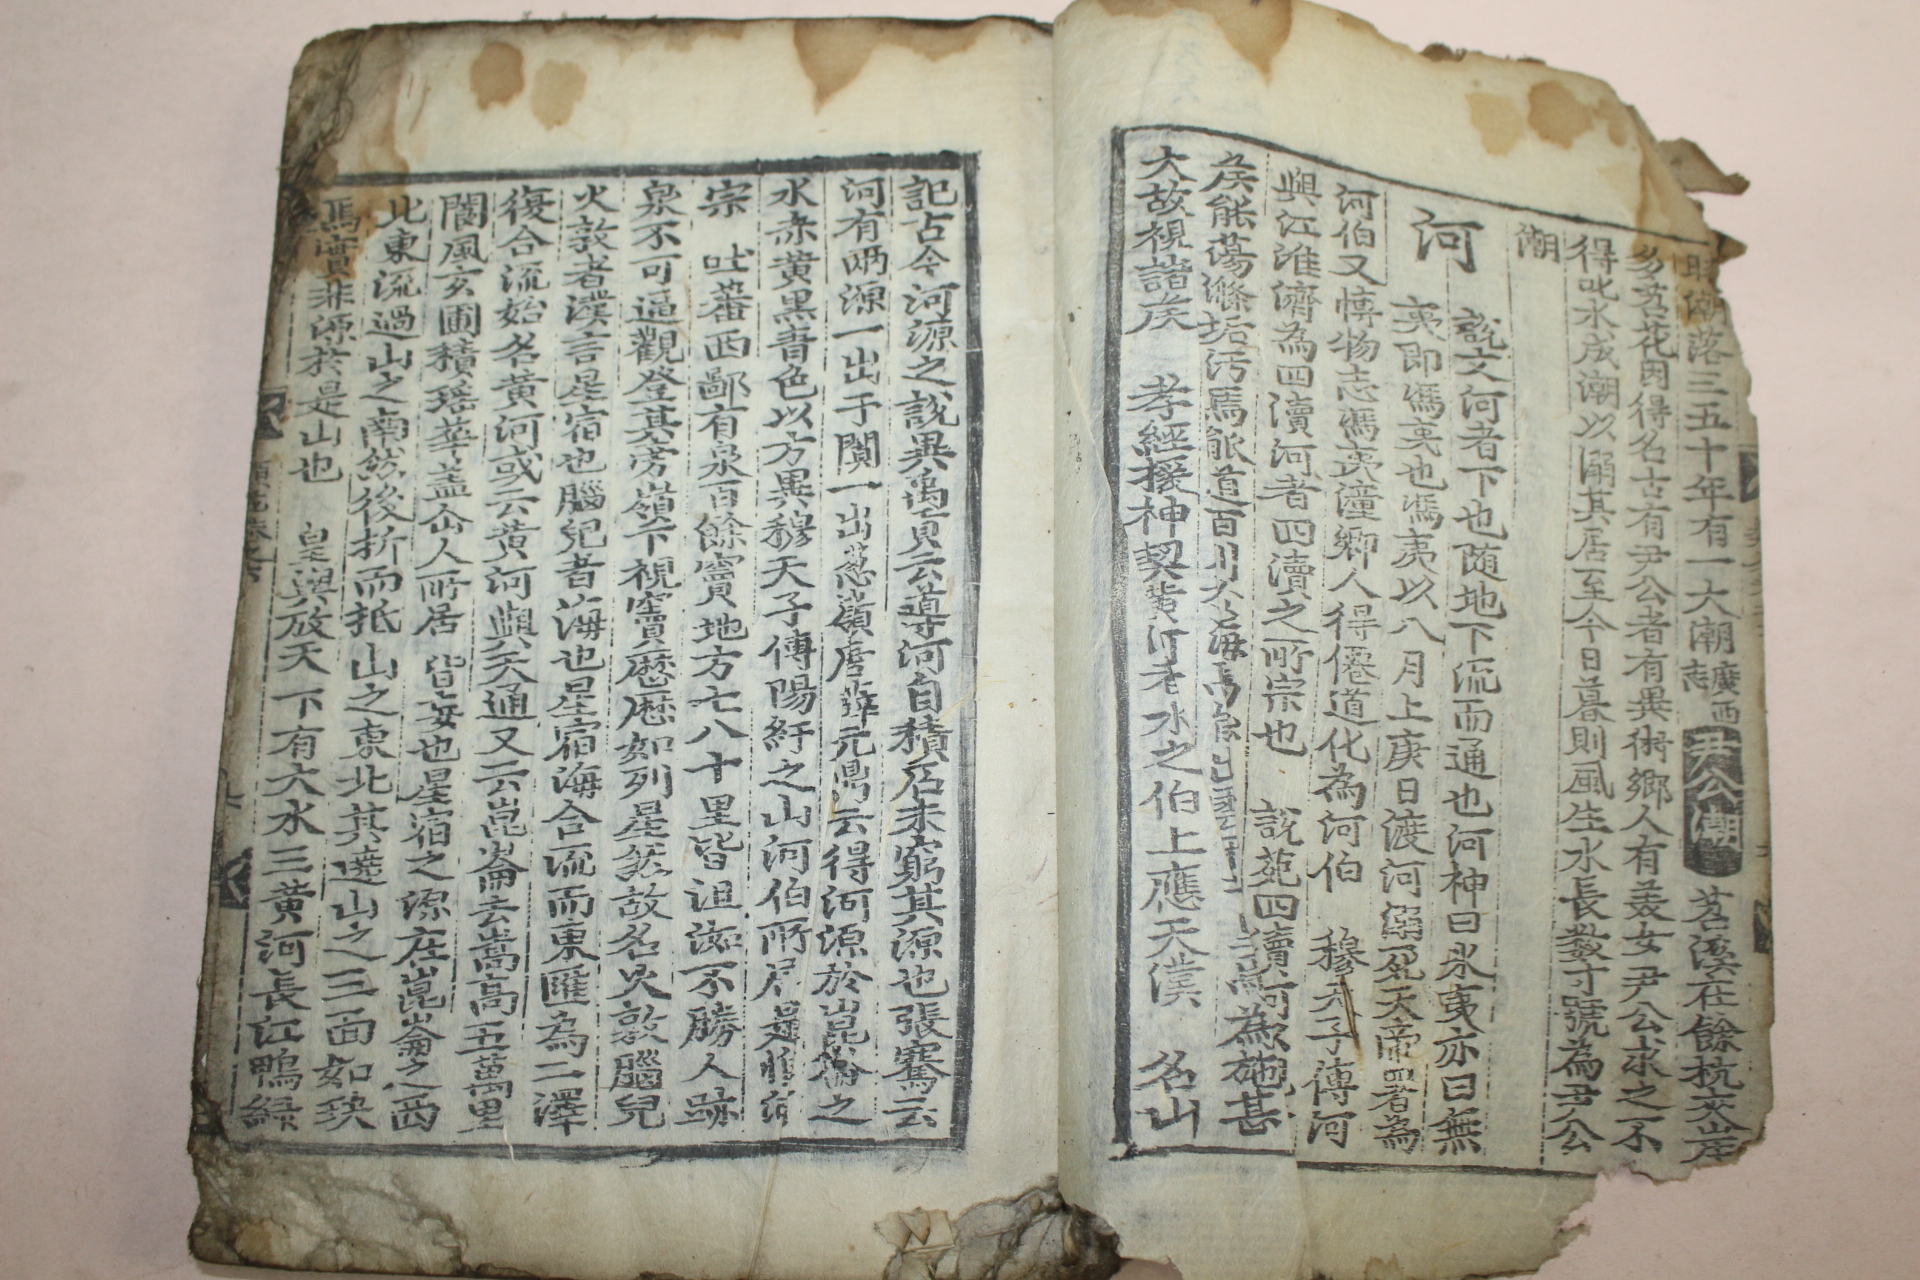 潮落三五十年有一大潮廣西志尹公潮苕溪在餘杭
多苕花因得名古有尹公者有異術鄉人有美女尹公求之不
得叱水成潮以溺其居至今日暮則風生水長數寸號為尹公
潮
河說文河者下也随地下流而通也河神曰氷夷亦曰無
夷即馮夷也馮夷以八月上庚日渡河溺死天帝署為
河伯又博物志馮夷潼鄉人得僊道化為河伯 穆天子傳河
與江淮濟為四瀆河者四瀆之所宗也 說苑四瀆河
矦能蕩滌垢汚焉能道百川於海焉 為施甚
大故視諸矦 孝經援神契黃河者水之伯上應天漢 名山
記古今河源之說異禹貢云導河自積石未窮其源也張騫云
河有两源一出于闐一出葱嶺唐薛元鼎云得河源於崑崙之
水赤黄黑青色以方異穆天子傳陽紆之山河伯所居是惟河
宗 吐蕃西鄙有泉百餘竇地方七八十里皆沮洳不勝人跡
泉不可逼觀登其旁嶺下視竇歷歷如列星然故名火敦腦兒
火敦者漢言星宿也腦兒者海也星宿海合流而東匯為二澤
復合流始名黄河或云黄河與天通又云崑崙去嵩高五萬里
閬風玄圃積瑶華盖仚人所居 皆妄也星宿之源在崑崙之西
北東流過山之南然後折而抵山之東北其遶山之三面如玦
焉實非源於是山也 皇輿放天下有大水三黄河長江鴨綠